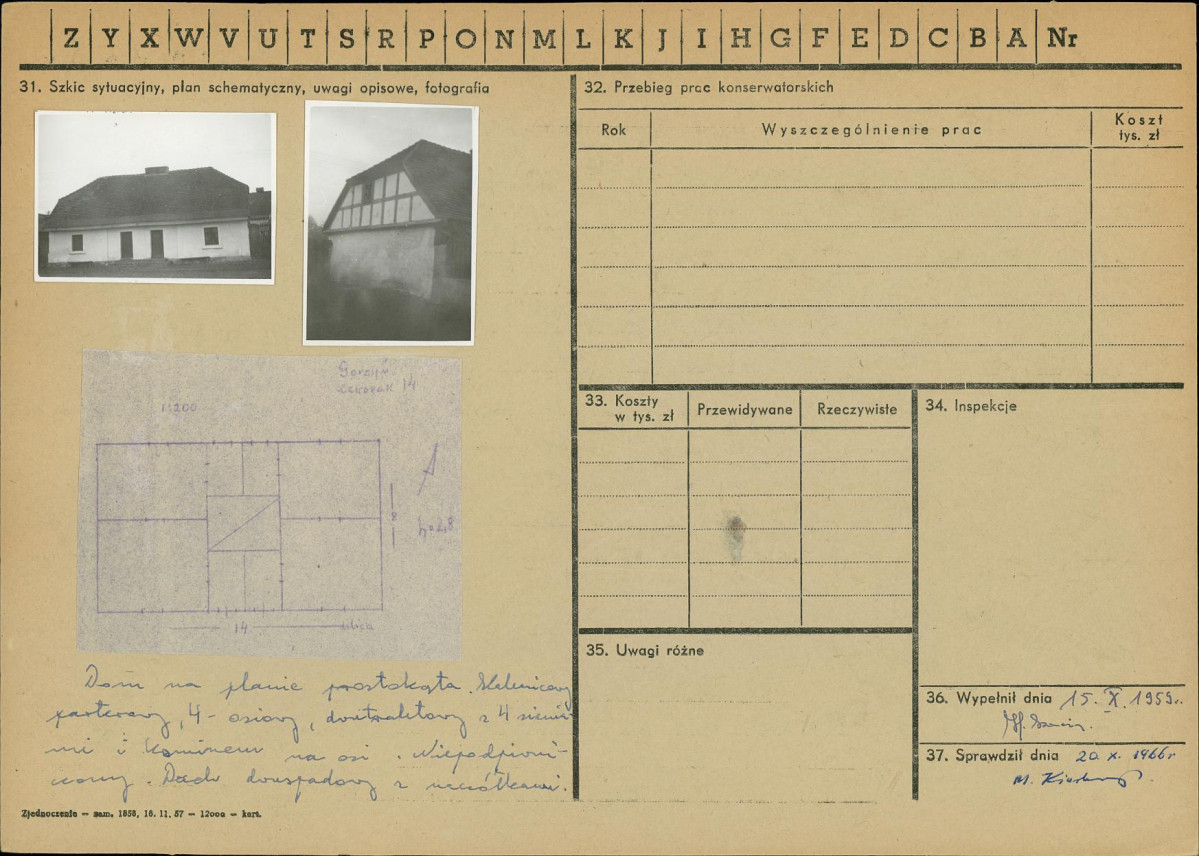 Z Y X W V U T S R P O N M L K J I H G F E D C B A Nr
31. Szkic sytuacyjny, plan schematyczny, uwagi opisowe, fotografia
1:200
14
h=2,8
8
14 ulica
Dom na planie prostokąta.
parterowy, 4-osiowy, dwutraktowy z 4 sienia-
mi i kominem na osi. Niepodpiwni-
czony. Dach dwuspadowy z naczółkami.
Zjednoczenie — zam. 1858, 16. 11. 57 — 12000 — kart.
32. Przebieg prac konserwatorskich
Rok
Wyszczególnienie prac
Koszt
tys. zł
33. Koszty
w tys. zł
Przewidywane
Rzeczywiste
34. Inspekcje
35. Uwagi różne
36. Wypełnił dnia 15. X. 1959r.
37. Sprawdził dnia 20. X. 1966r